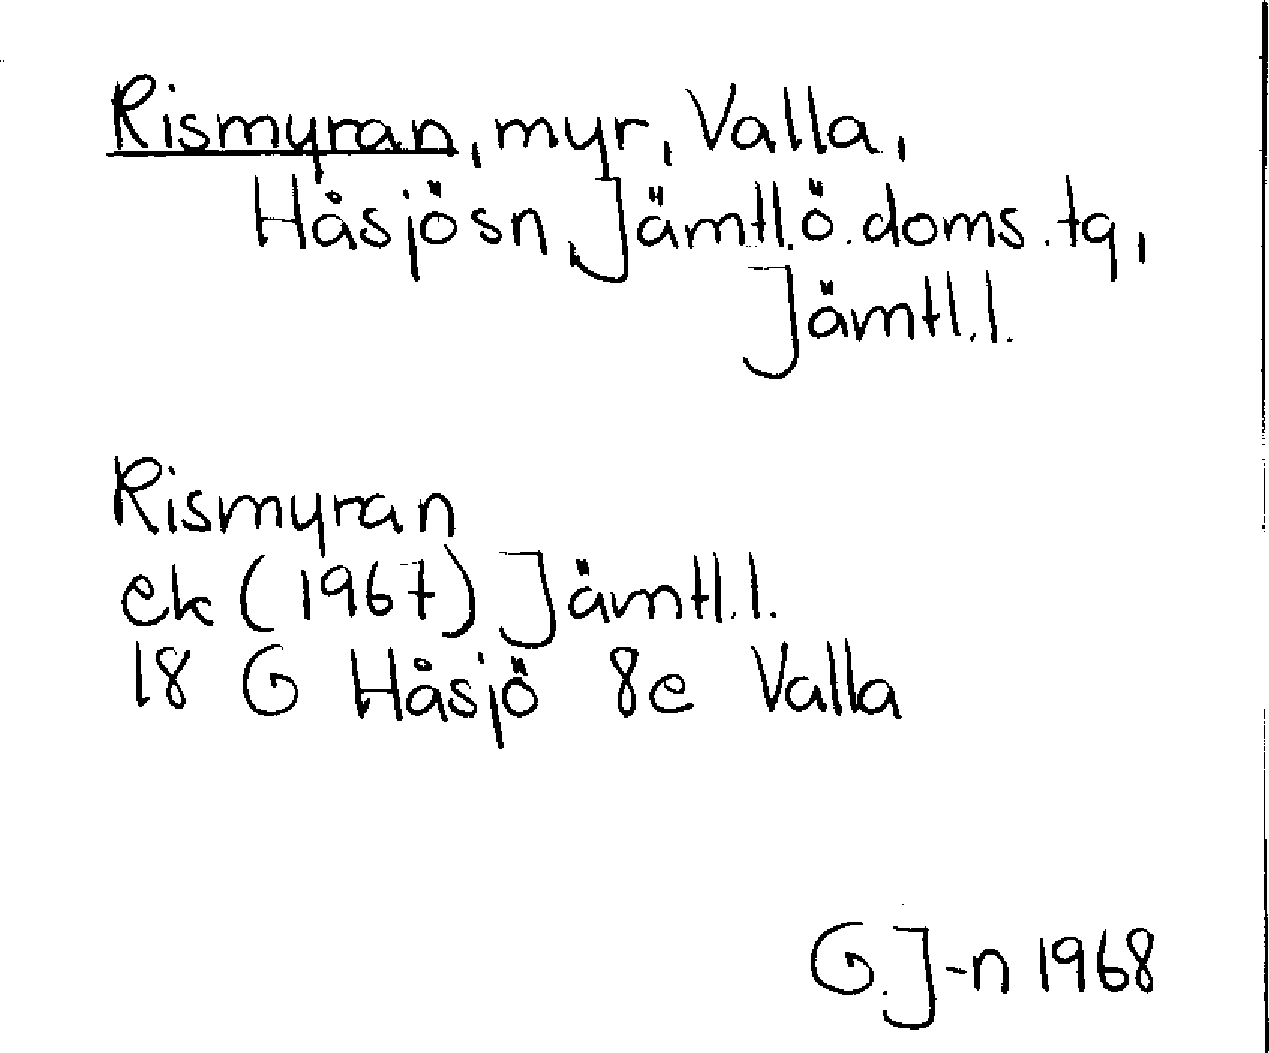 Rismyran, myr, Valla,
Håsjösn, Jämtl.ö.doms.tg,
Jämtl.l.
Rismyran
ek (1967) Jämtl.l.
18 G Håsjö 8e Valla
G.J-n 1968